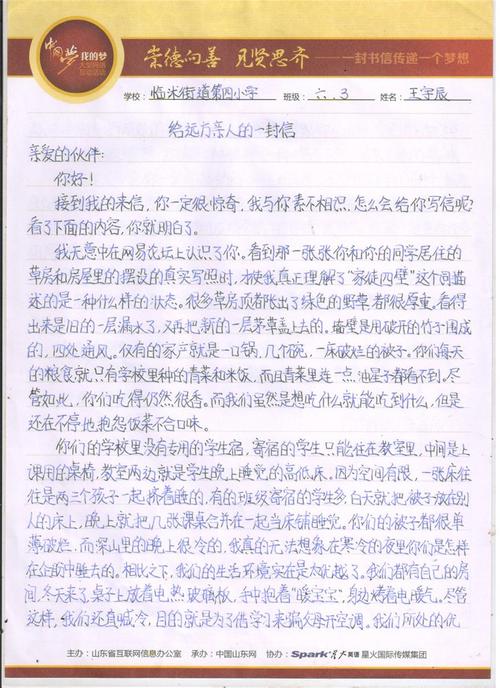 中国梦
我的梦
大型网络
互动活动
崇德向善 见贤思齐 ——一封书信传递一个梦想
学校：临沭街道第四小学 班级：六.3 姓名：王宇辰
给远方亲人的一封信
亲爱的伙伴：
你好！
接到我的来信，你一定很惊奇，我与你素不相识，怎么会给你写信呢？
看了下面的内容，你就明白了。
我无意中在网易论坛上认识了你。看到那一张张你和你的同学居住的
草房和房屋里的摆设的真实写照时，才使我真正理解了“家徒四壁”这个词描
述的是一种什么样的状态。很多草房顶都长出了绿色的野草都很厚重。看得
出来是旧的一层漏水了，又再把新的一层茅草盖上去的。墙壁是用破开的竹子围成
的，四处通风。仅有的家产就是一口锅，几个碗，一床破烂的被子。你们每天
的粮食就只有学校里种的青菜和米饭，而且青菜里连一点油星子都看不到。尽
管如此，你们吃得仍然很香。而我们虽然是想吃什么就能吃到什么，但是
还在不停地抱怨饭菜不合口味。
你们的学校里没有专用的学生宿，寄宿的学生只能住在教室里，中间是上
课用的桌椅，教室两边就是学生晚上睡觉的高低床。因为空间有限，一张床往
往是两三个孩子一起挤着睡，有的班级寄宿的学生多，白天就把被子放在别
人的床上，晚上就把几张课桌合并在一起当床铺睡觉。你们的被子都很单
薄破烂，而深山里的晚上很冷的，我真的无法想象在寒冷的夜里你们是怎样
在上面中睡去的。相比之下，我们的生活环境实在是太优越了。我们都有自己的房
间，冬天来了，桌子上放着电热玻璃板，手中抱着“暖宝宝”，身边烤着电暖气。尽管
这样，我们还直喊冷，目的就是为了借学习来骗父母开空调。我们所处的优
主办：山东省互联网信息办公室 承办：中国山东网 协办：Spark星火英语 星火国际传媒集团